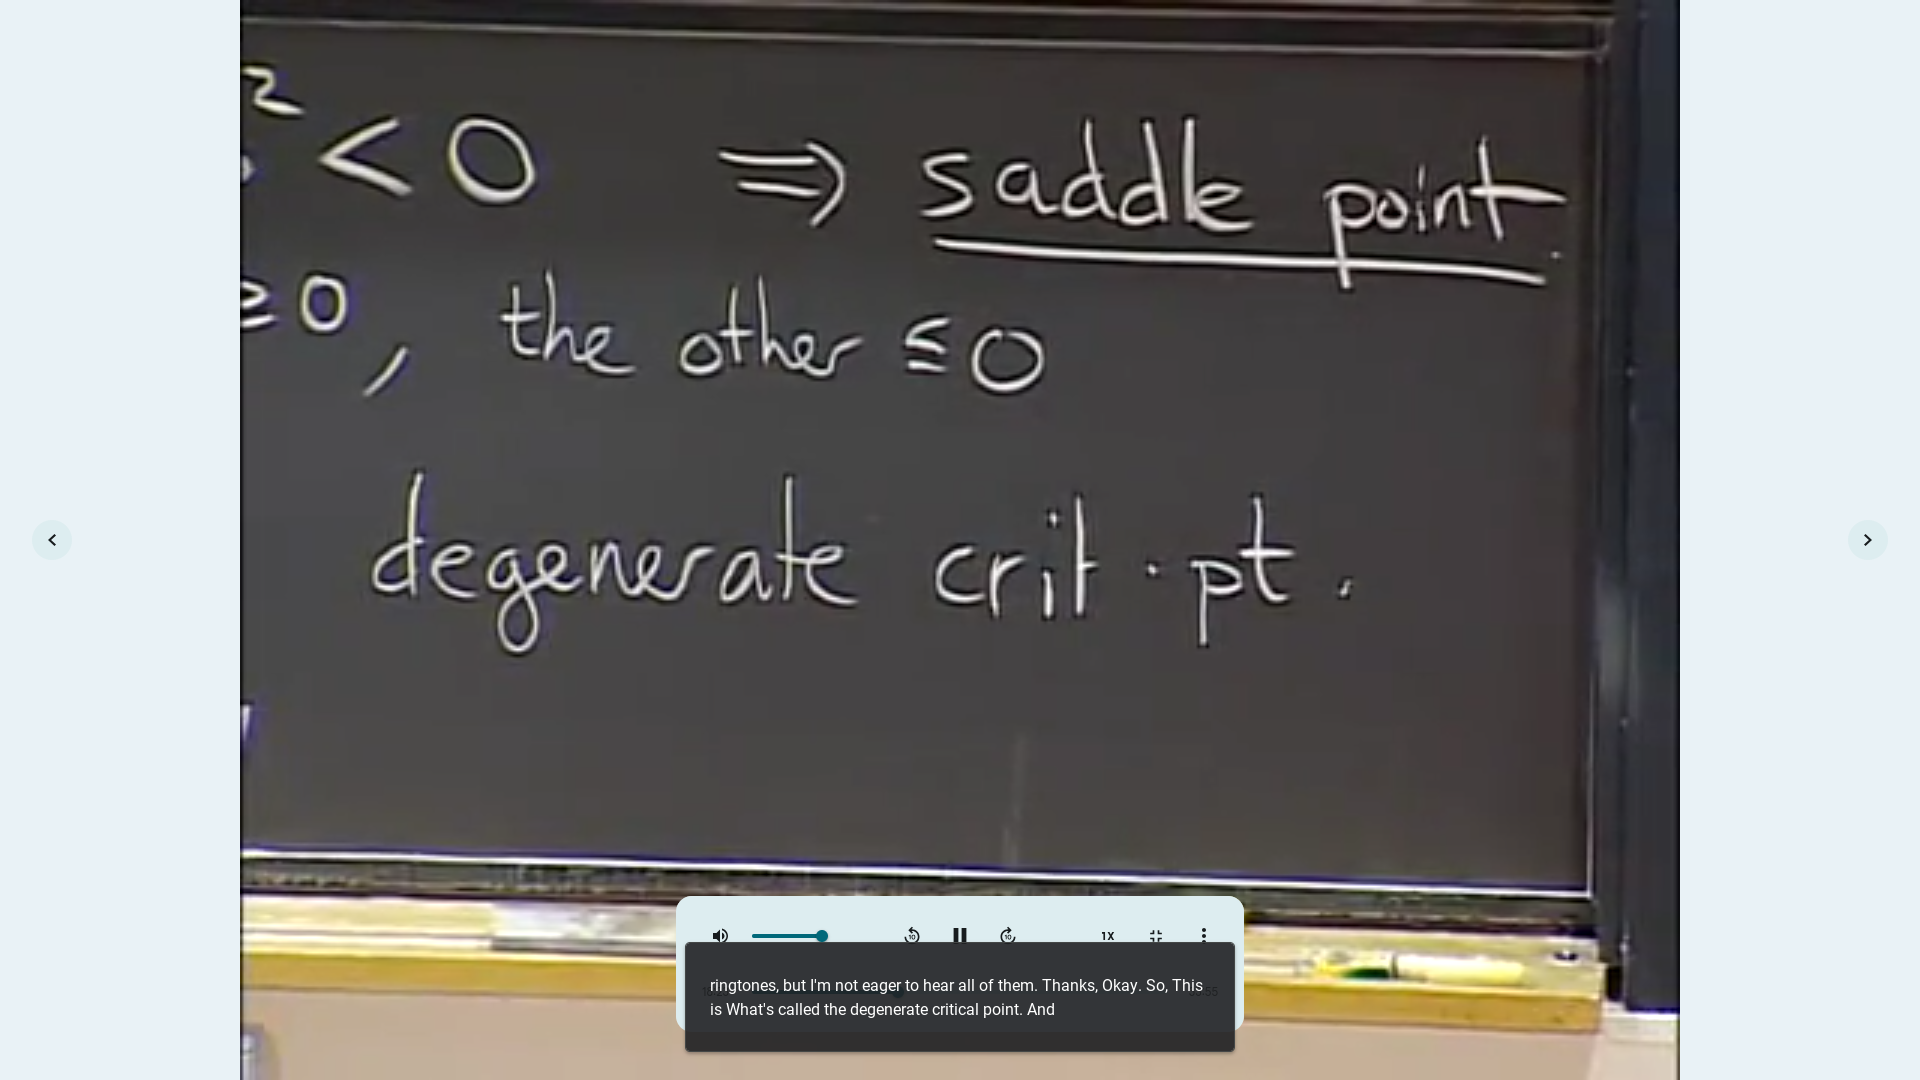 ² < 0 ⇒ saddle point
≥ 0, the other ≤ 0
degenerate crit. pt.
1X
ringtones, but I'm not eager to hear all of them. Thanks, Okay. So, This
is What's called the degenerate critical point. And